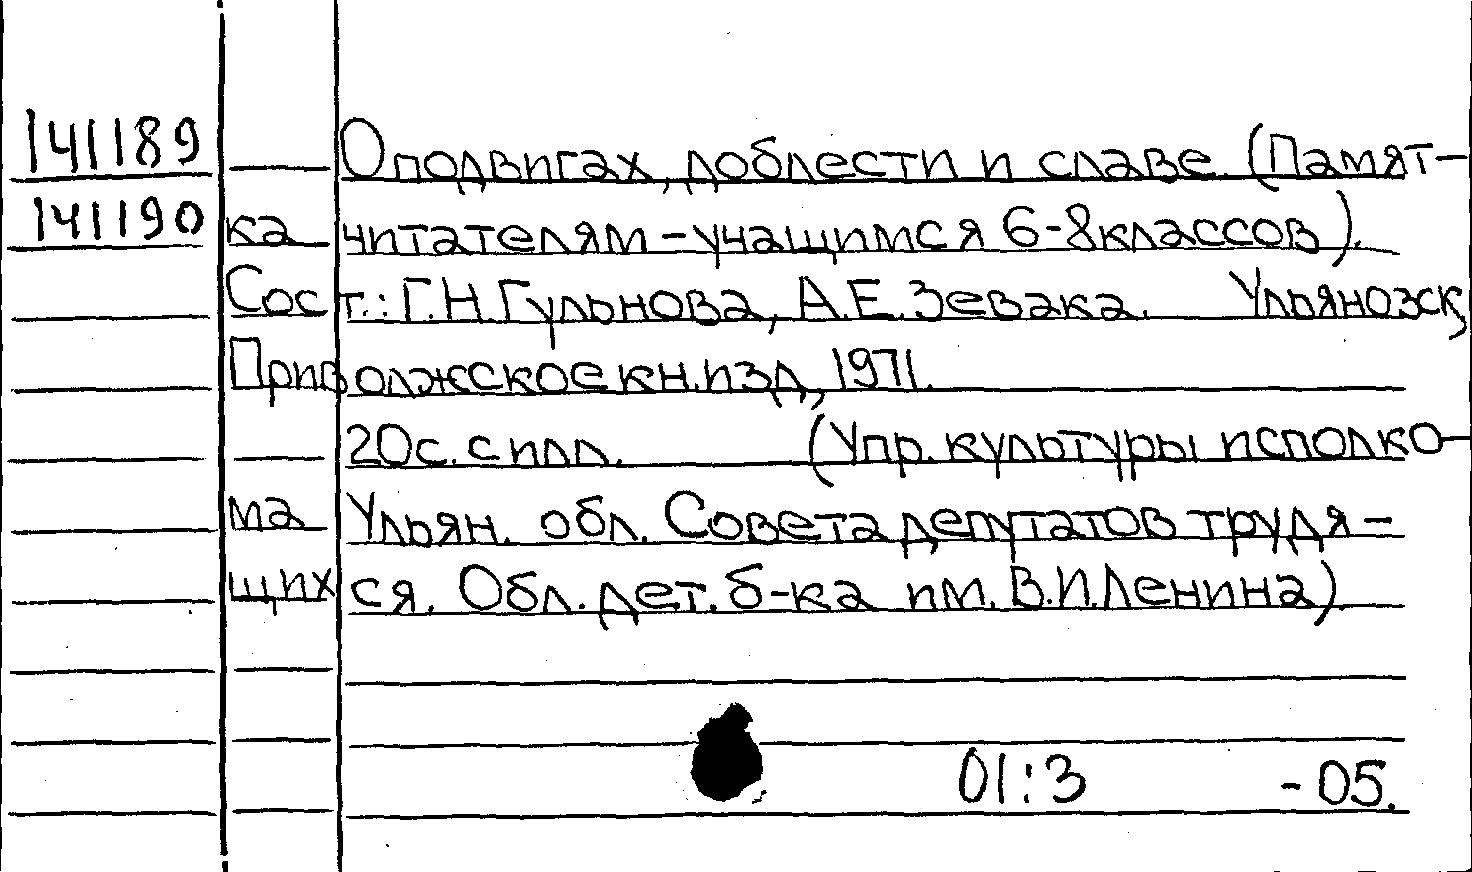 141189 О подвигах, доблести и славе. (Памят-
141190 ка читателям-учащимся 6-8 классов).
Сост.: Г.Н.Гульнова, А.Е.Зевака. Ульяновск,
Приволжское кн.изд, 1971.
20с. с илл. (Упр. культуры исполко-
ма Ульян. обл. Совета депутатов трудя-
щихся. Обл. дет. б-ка им. В.И.Ленина).
01:3 -05.